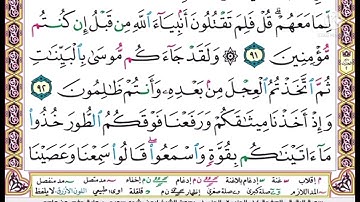 لِّمَا مَعَهُمْ ۗ قُلْ فَلِمَ تَقْتُلُونَ أَنۢبِيَآءَ ٱللَّهِ مِن قَبْلُ إِن كُنتُم
مُّؤْمِنِينَ ۝٩١ ۞ وَلَقَدْ جَآءَكُم مُّوسَىٰ بِٱلْبَيِّنَٰتِ
ثُمَّ ٱتَّخَذْتُمُ ٱلْعِجْلَ مِنۢ بَعْدِهِۦ وَأَنتُمْ ظَٰلِمُونَ ۝٩٢
وَإِذْ أَخَذْنَا مِيثَٰقَكُمْ وَرَفَعْنَا فَوْقَكُمُ ٱلطُّورَ خُذُوا۟
مَآ ءَاتَيْنَٰكُم بِقُوَّةٍ وَٱسْمَعُوا۟ ۖ قَالُوا۟ سَمِعْنَا وَعَصَيْنَا